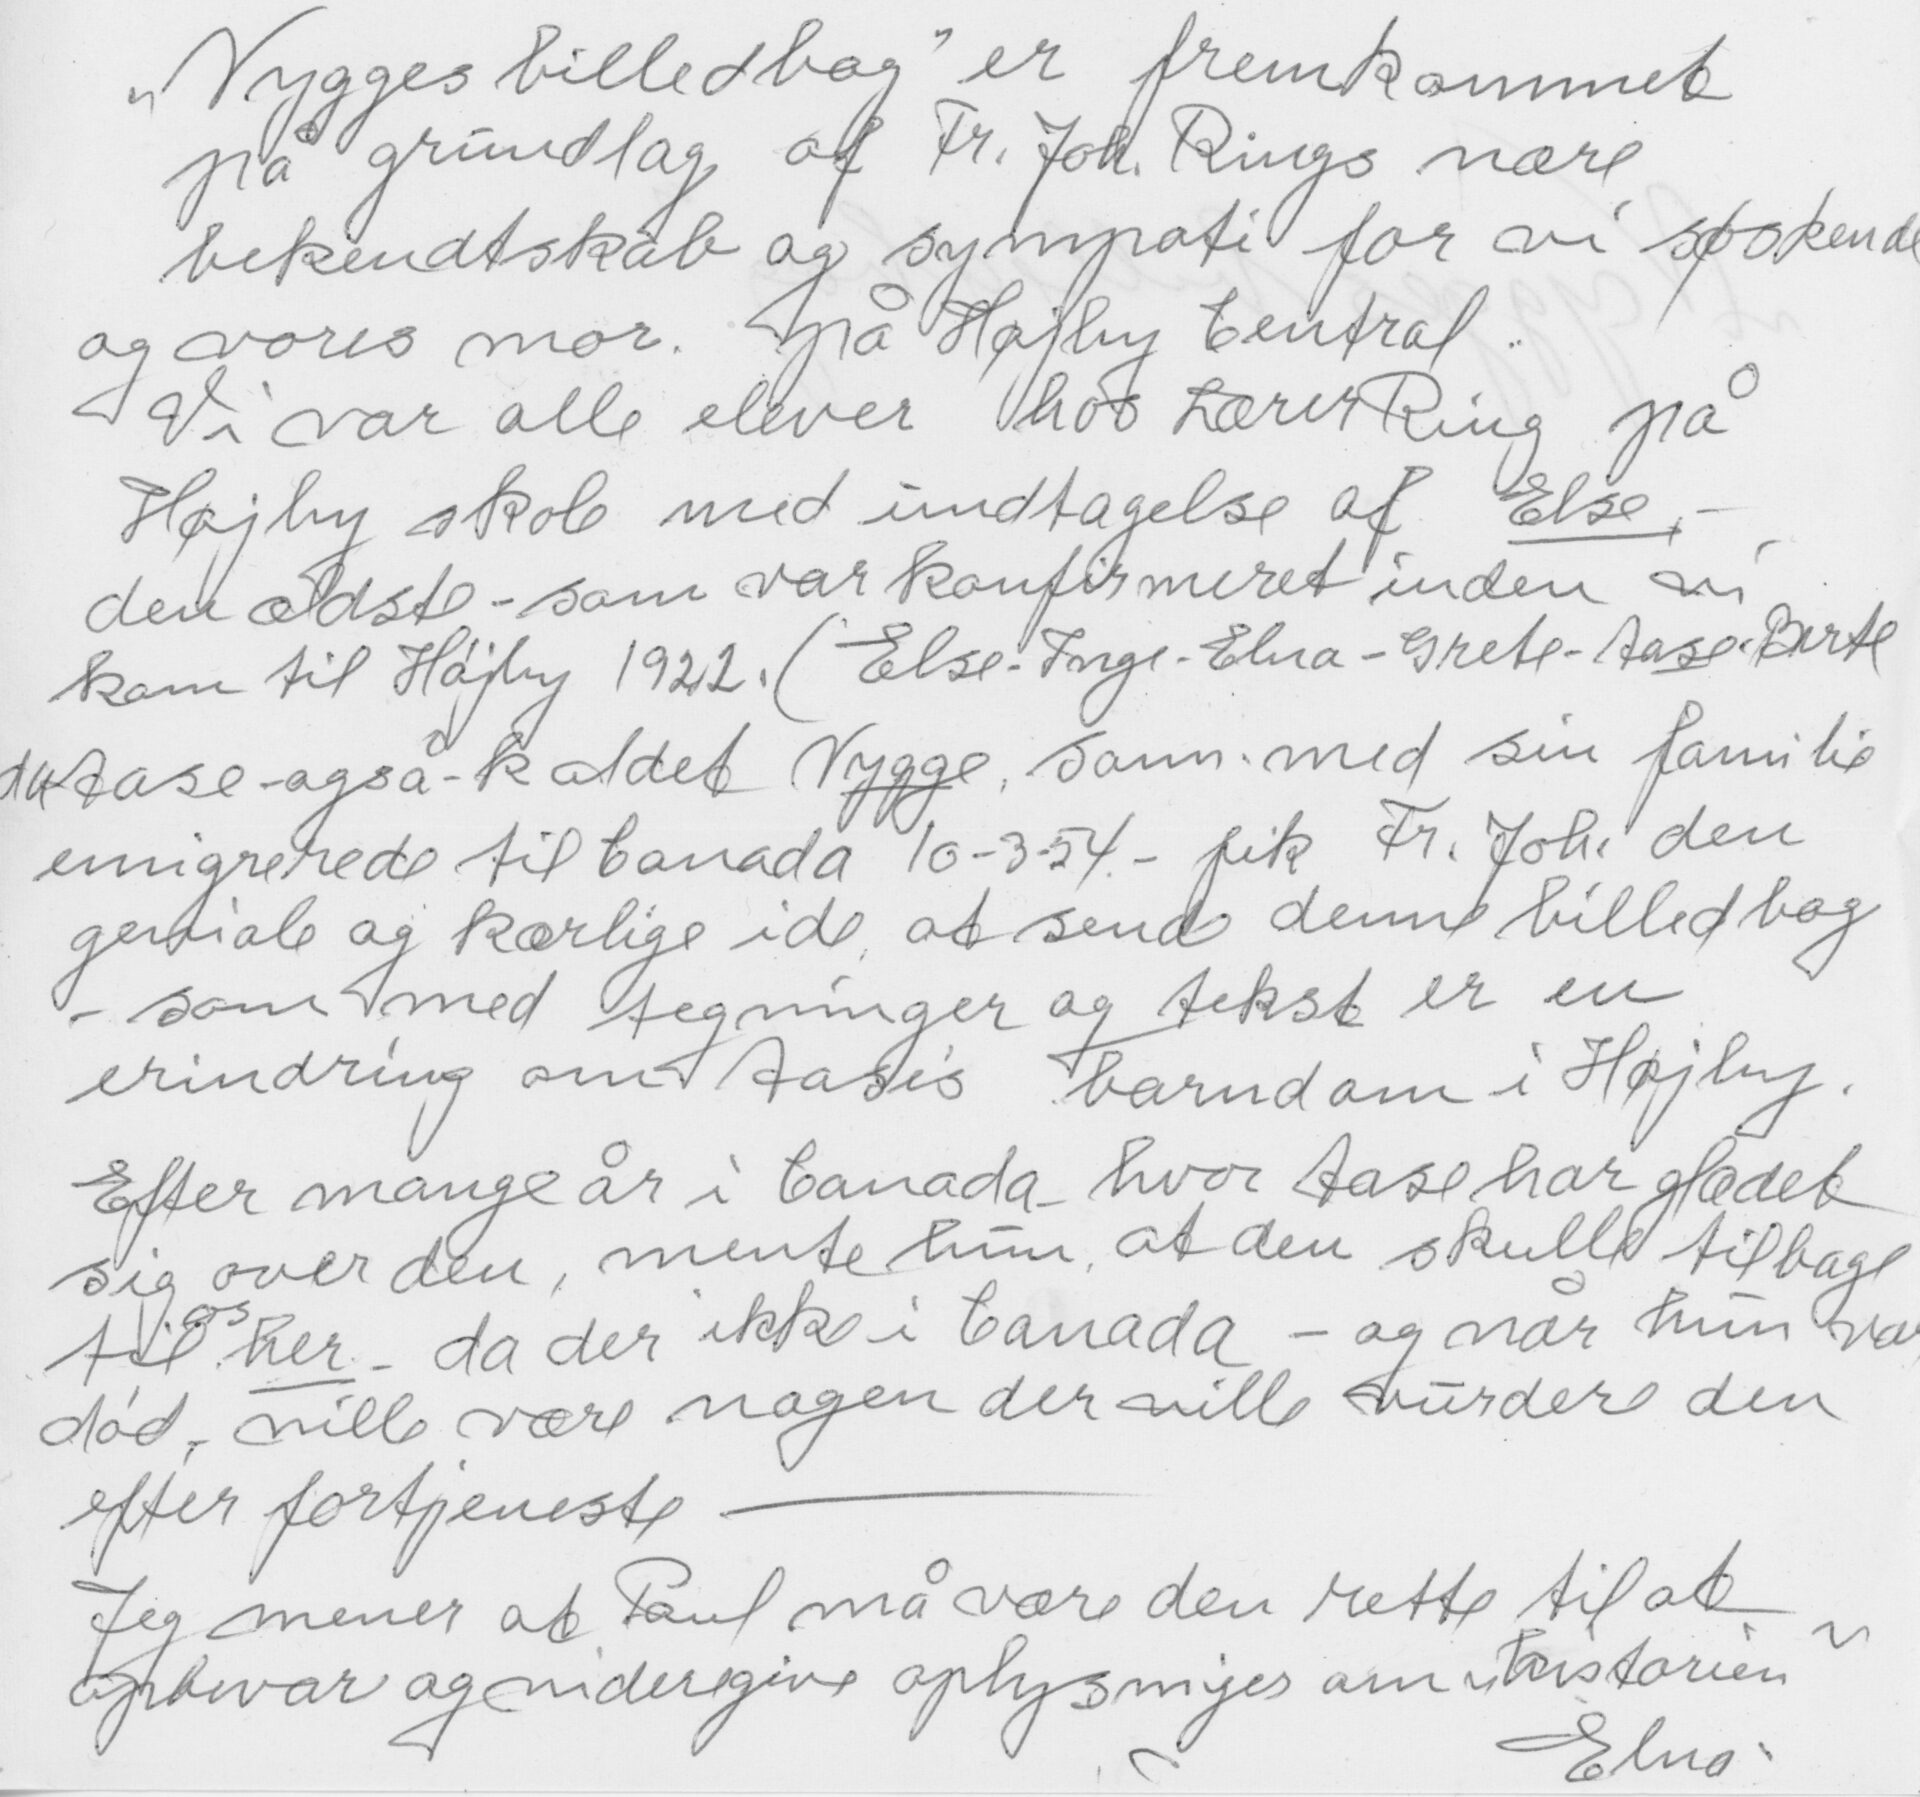 "Nygges billedbog" er fremkommet
på grundlag af Fr. Joh. Rings nære
bekendtskab og sympati for vi søskende
og vores mor. på Højby Central.
Vi var alle elever hos Lærer Ring på
Højby skole med undtagelse af Else, -
den ældste - som var konfirmeret inden vi
kom til Højby 1922. ( Else - Inge - Elna - Grete - Aase - Berte
Aase - også - kaldet Nygge, som med sin familie
emigrerede til Canada 10-3-54. - fik Fr. Joh. den
geniale og kærlige ide, at sende denne billedbog
- som med tegninger og tekst er en
erindring om Aases barndom i Højby.
Efter mange år i Canada - hvor Aase har glædet
sig over den, mente hun, at den skulle tilbage
til os her - da der ikke i Canada - og når hun var
död, - ville være nogen der ville vurdere den
efter fortjeneste -
Jeg mener at Poul må være den rette til at
opbevare og videregive oplysniger om "historien"
Elna